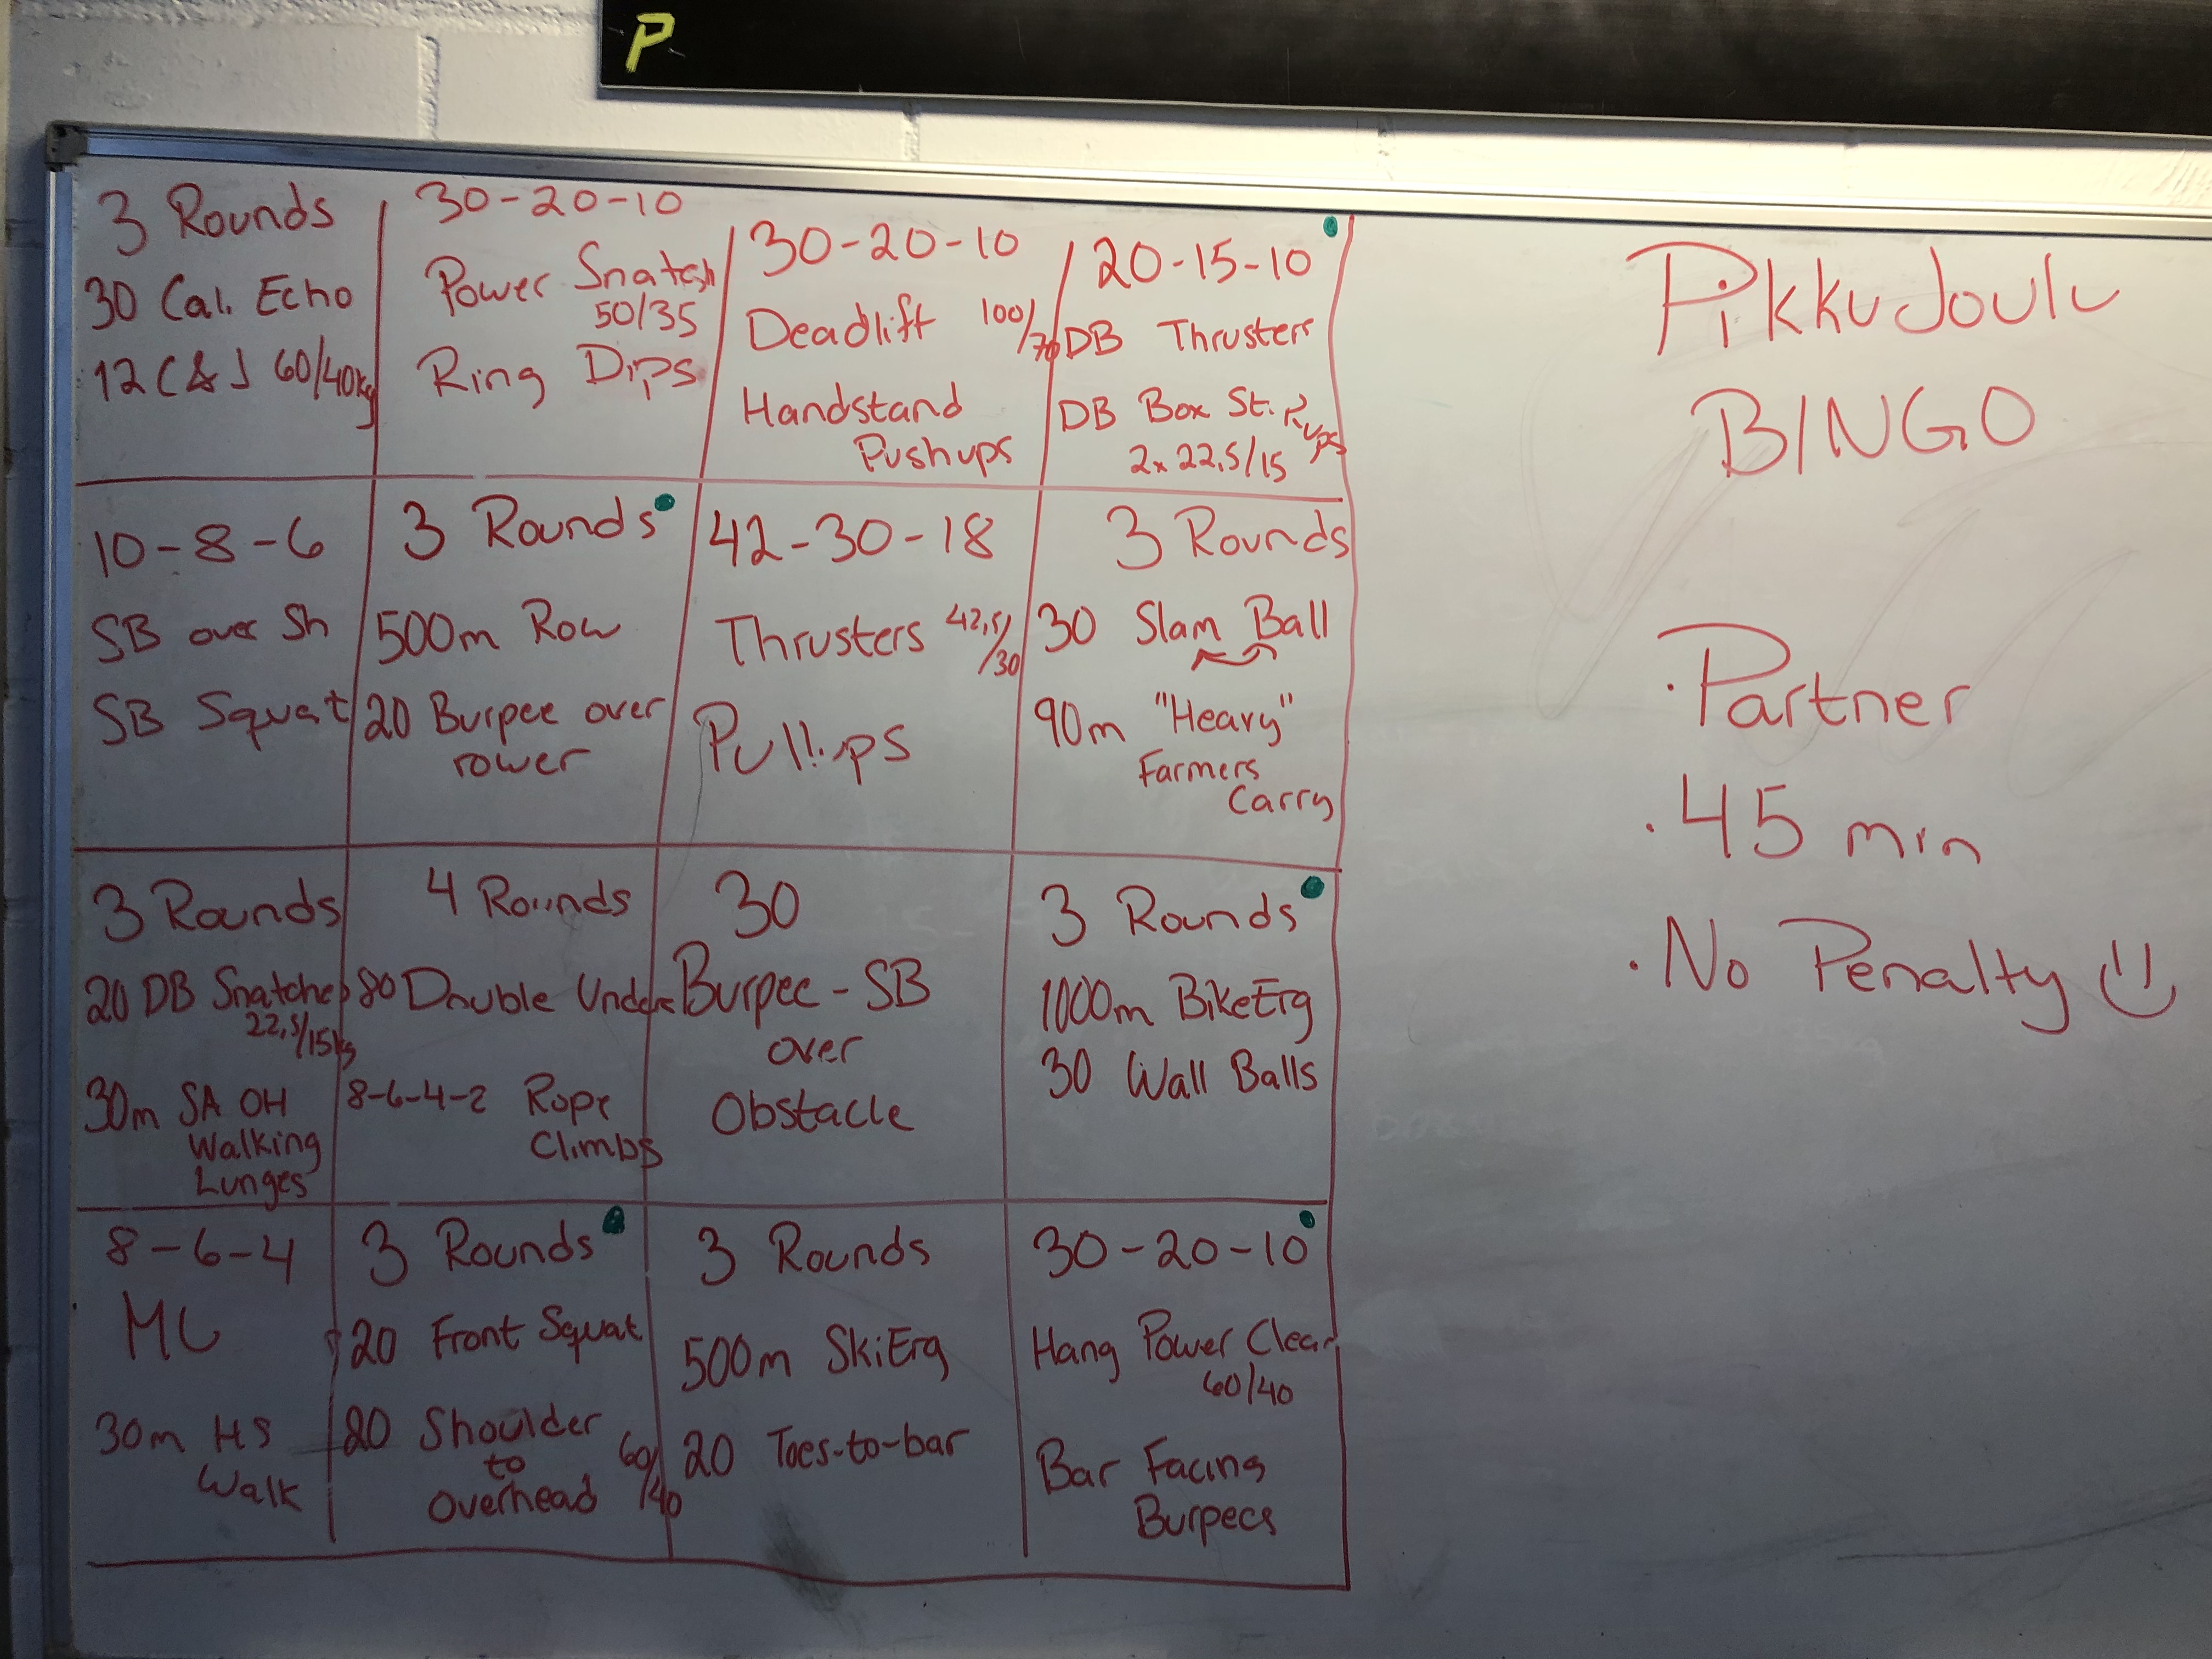 P
3 Rounds
30 Cal. Echo
12 C&J 60/40kg
30-20-10
Power Snatch
50/35
Ring Dips
30-20-10
Deadlift 100/70
Handstand
Pushups
20-15-10
DB Thrusters
DB Box St.
ups
2x 22,5/15
10-8-6
SB over Sh
SB Squat
3 Rounds
500m Row
20 Burpee over
rower
42-30-18
Thrusters 42,5/30
Pullups
3 Rounds
30 Slam Ball
90m "Heavy"
Farmers
Carry
3 Rounds
20 DB Snatches
22,5/15kg
30m SA OH
Walking
Lunges
4 Rounds
80 Double Unders
8-6-4-2 Rope
Climbs
30
Burpee - SB
over
Obstacle
3 Rounds
1000m BikeErg
30 Wall Balls
8-6-4
MU
30m HS
Walk
3 Rounds
20 Front Squat
20 Shoulder
to
Overhead 60/40
3 Rounds
500m SkiErg
20 Toes-to-bar
30-20-10
Hang Power Clean
60/40
Bar Facing
Burpees
PikkuJoulu
BINGO
· Partner
· 45 min
· No Penalty